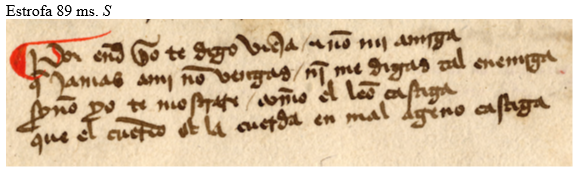 Estrofa 89 ms. S
Por end yo te digo vieja / e nõ mi amiga
q̃ jamas ami nõ vengas / nĩ me digas tal enemiga
syno yo te mostrare / com̃o el leõ castiga
que el cuerdo e la cuerda en mal ageno castiga